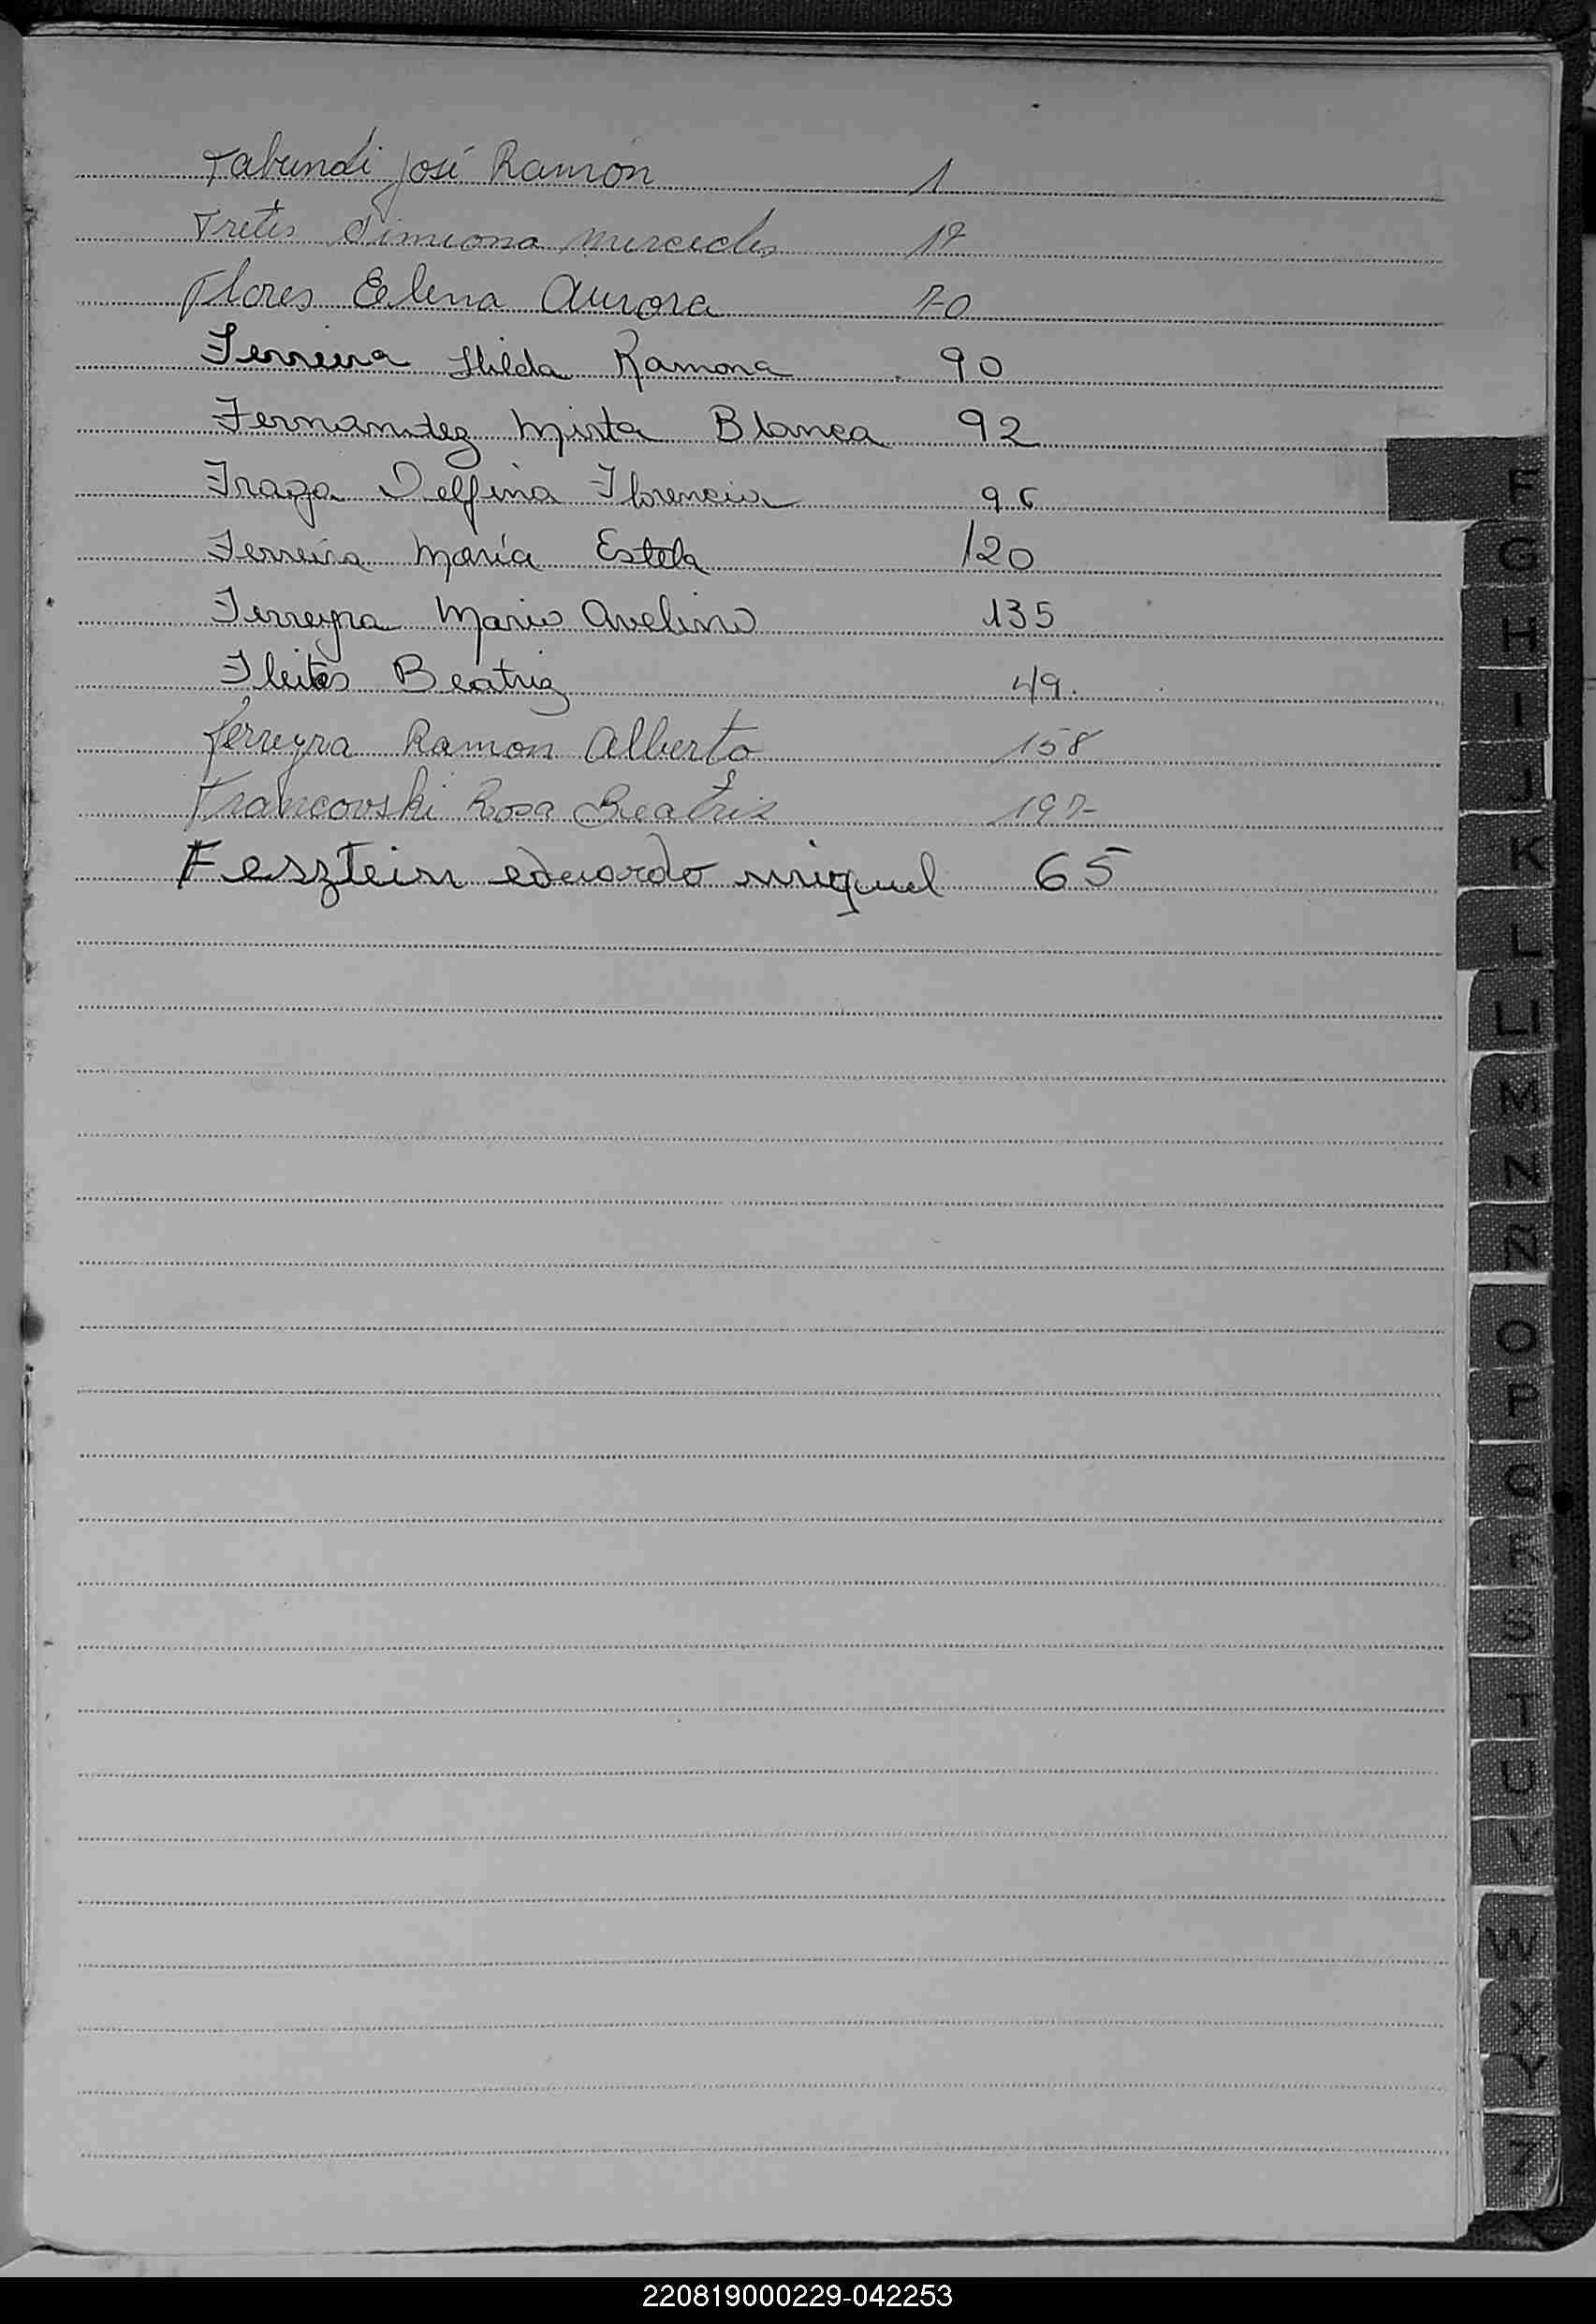 Fabundi José Ramón 1
Fretes Simiona Mercedes 17
Flores Elena Aurora 70
Ferreira Hilda Ramona 90
Fernandez Mirta Blanca 92
Fraga Delfina Florencia 96
Ferreira María Estela 120
Ferreyra Mario Avelino 135
Fleitas Beatriz 49.
ferreyra Ramon Alberto 158
Francovski Rosa Beatriz 197
Fesztein eduardo miguel 65
F
G
H
I
J
K
L
LL
M
N
Ñ
O
P
Q
R
S
T
U
V
W
X
Y
Z
220819000229-042253